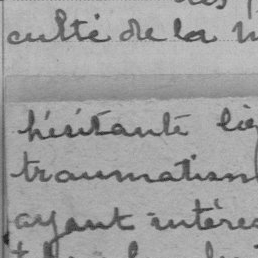 culté de la
hésitante
traumatism
ayant intére